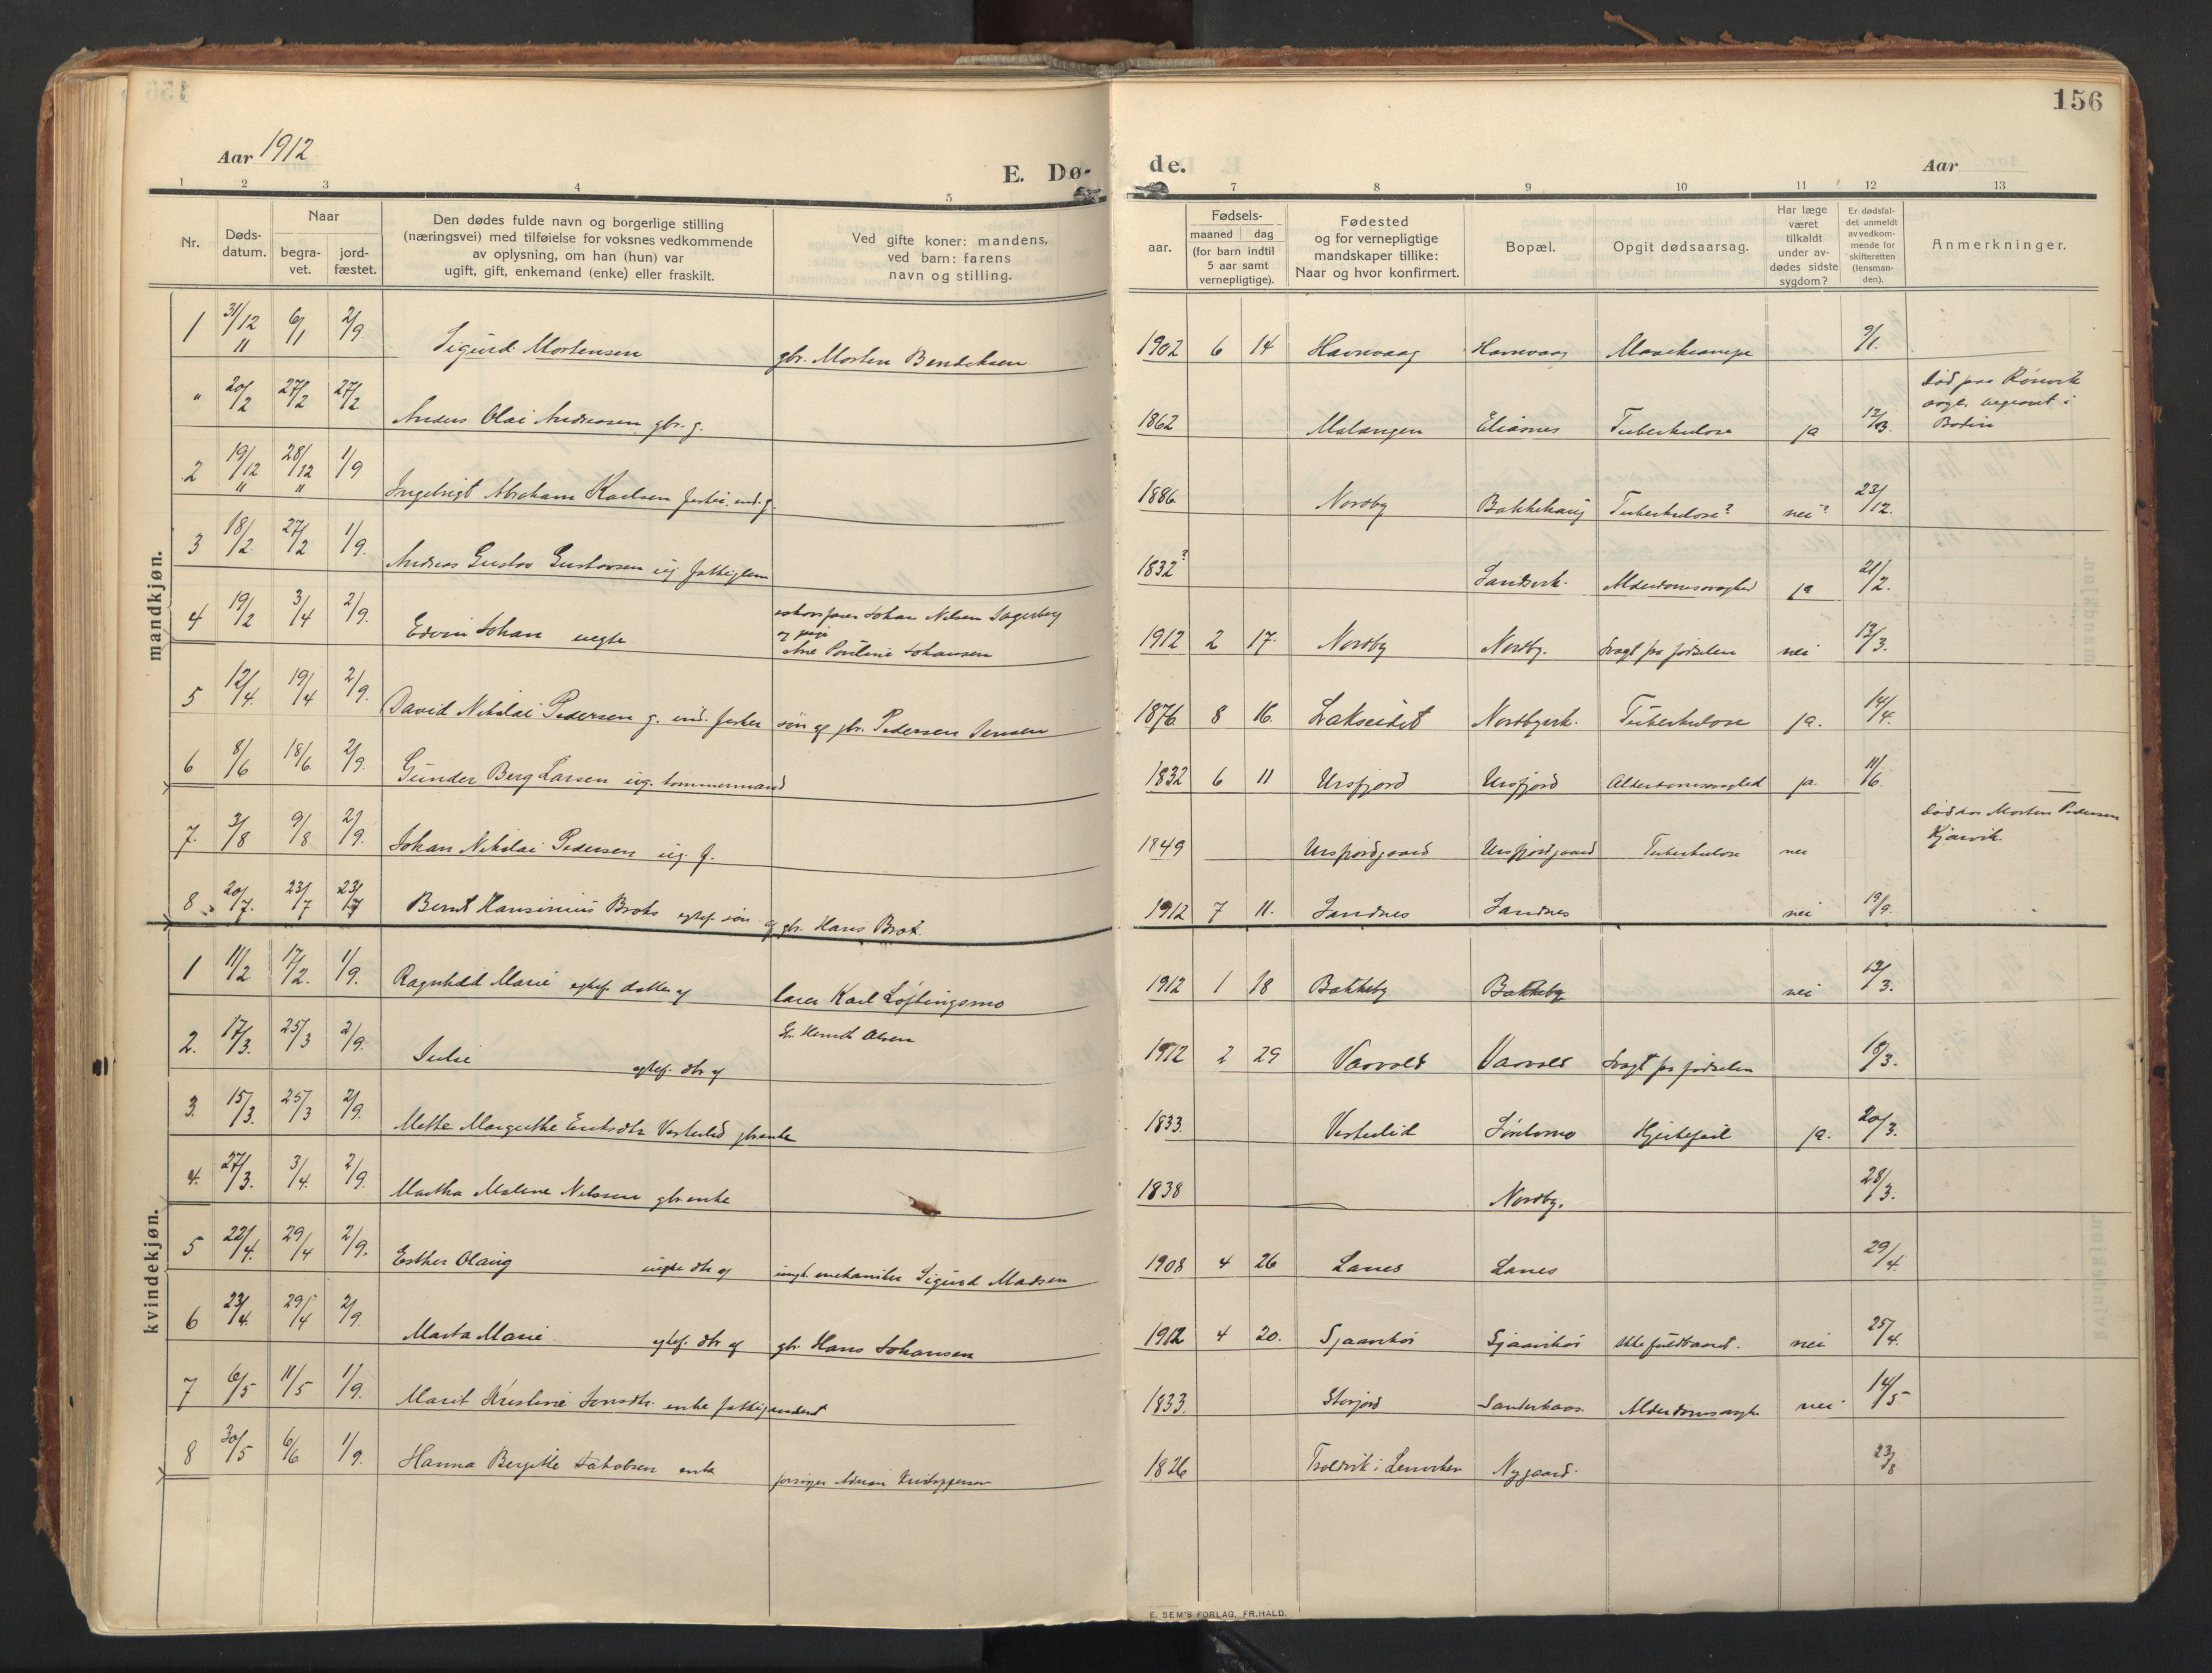 156
Aar 1912
E. Dø- de.
Aar
1 2 3 4 5 7 8 9 10 11 12 13
Nr.
Døds-
datum.
Naar
begra-
vet.
jord-
fæstet.
Den dødes fulde navn og borgerlige stilling
(næringsvei) med tilføielse for voksnes vedkommende
av oplysning, om han (hun) var
ugift, gift, enkemand (enke) eller fraskilt.
Ved gifte koner: mandens,
ved barn: farens
navn og stilling.
Fødsels-
aar.
maaned dag
(for barn indtil
5 aar samt
vernepligtige).
Fødested
og for vernepligtige
mandskaper tillike:
Naar og hvor konfirmert.
Bopæl.
Opgit dødsaarsag.
Har læge
været
tilkaldt
under av-
dødes sidste
sygdom?
Er dødsfal-
det anmeldt
av vedkom-
mende for
skifteretten
(lensman-
den).
Anmerkninger.
mandkjøn.
1 31/12 11 6/1 2/9. Sigurd Mortensen gbr. Morten Bendiksen 1902 6 14 Havnvaag Havnvaag 9/1.
" 20/2 27/2 27/2 Anders Olai Andreasen gbr. g. 1862 Malangen Eliasnes Tuberkulose ja 12/03. Død paa Rønvik
asyl. begravet i
Bodin
2 19/12 11 28/12 11 1/9 Ingebrigt Abraham Karlsen g. 1886 Nordby Bakkehaug Tuberkulose? nei? 23/12.
3 18/2. 27/2 1/9. Andreas Gustav Gustavsen ug fattiglem 1832? Sandvik. Alderdomssvaghed ja 21/2.
4 19/2 3/4 2/9. Edvin Johan uegte Johan Nilsen Sagerberg
og pige
Ane Pouline Johansen 1912 2 17. Nordby Nordby. Svagt fra fødselen nei 12/3.
5 12/4. 19/4 2/9. David Nikolai Pedersen g. ind. fester søn af gbr. Pedersen Jensen 1876 8 16. Lakseidet Nordbyerk. Tuberkulose ja. 14/4.
6 8/6 18/6. 2/9. Gunder Berg Larsen ug. tømmermand 1832 6 11 Ursfjord Ursfjord Alderdomssvaghed ja. 11/6.
7. 3/8 9/8 2/9. Johan Nikolai Pedersen ug. f. 1849 Ursfjordgaard Ursfjordgaard Tuberkulose nei Død hos Morten Pedersen
Kjærvik.
8 20/7. 23/7 23/7 Bernt Hansinius Broks egtef. søn af gbr. Hans Brok. 1912 7 11. Sandnes Sandnes nei 19/9.
kvindekjøn.
1 11/2 17/2. 1/9. Ragnhild Marie egtef. datter af lærer Karl Løftingsmo 1912 1 18 Bakkeby Bakkeby nei 13/3.
2. 17/3. 25/3 2/9. Julie egtef. dtr af Olsen 1912 2 29 Varvold Varvold Svagt fra fødselen 18/3.
3. 15/3. 25/3 2/9. Mette Margrethe Eriksdtr Vesterlid gbrenke 1833. Vesterlid Hjertefeil ja. 20/3.
4. 27/3. 3/4. 2/9. Martha Malene Nilssen gbrenke 1838 Nordby. 28/3.
5 22/4. 29/4 2/9. Esther Olaug uegte dtr af ungk. mekaniker Sigurd Madsen 1908 4 26 Lanes Lanes 29/4.
6 23/4. 29/4 2/9. Marta Marie egtef. dtr af gbr. Hans Johansen 1912 4 20. Ikke fuldbaaret. nei 25/4.
7 6/5 11/5 1/9. Marit Kristine Jensdtr. enke 1833. Storjord Alderdomssvaghe nei 14/5
8 30/5 6/6 1/9. Hanna Bergitte Jakobsen enke 1826 Nygaard. 23/8
E. SEM'S FORLAG, FR.HALD.